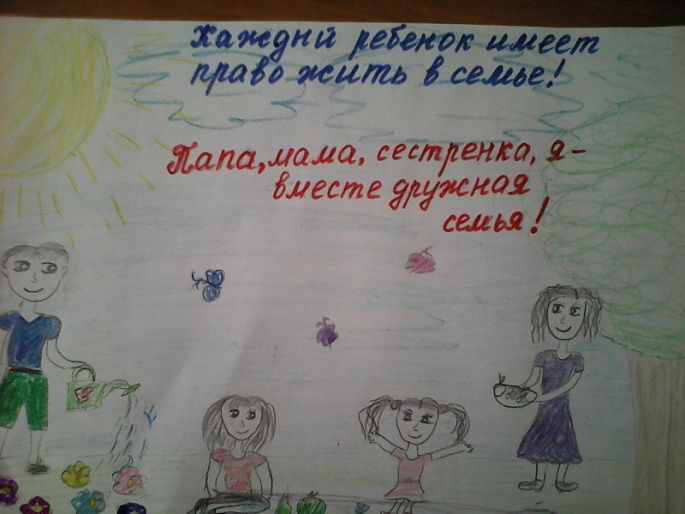 Каждый ребенок имеет
право жить в семье!
Папа, мама, сестренка, я -
вместе дружная
семья!